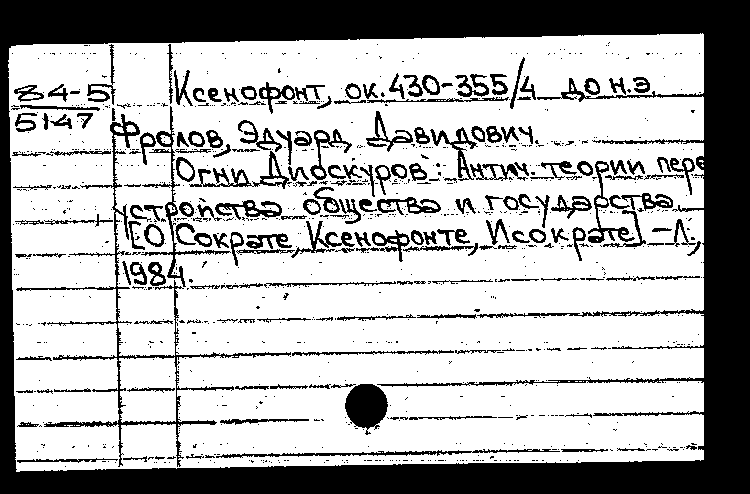 84-5
5147
Ксенофонт, ок. 430-355/4 до н.э.
Фролов, Эдуард Давидович.
Огни Диоскуров: Антич. теории пере
устройства общества и государства.
[О Сократе, Ксенофонте, Исократе] - Л.,
1984.